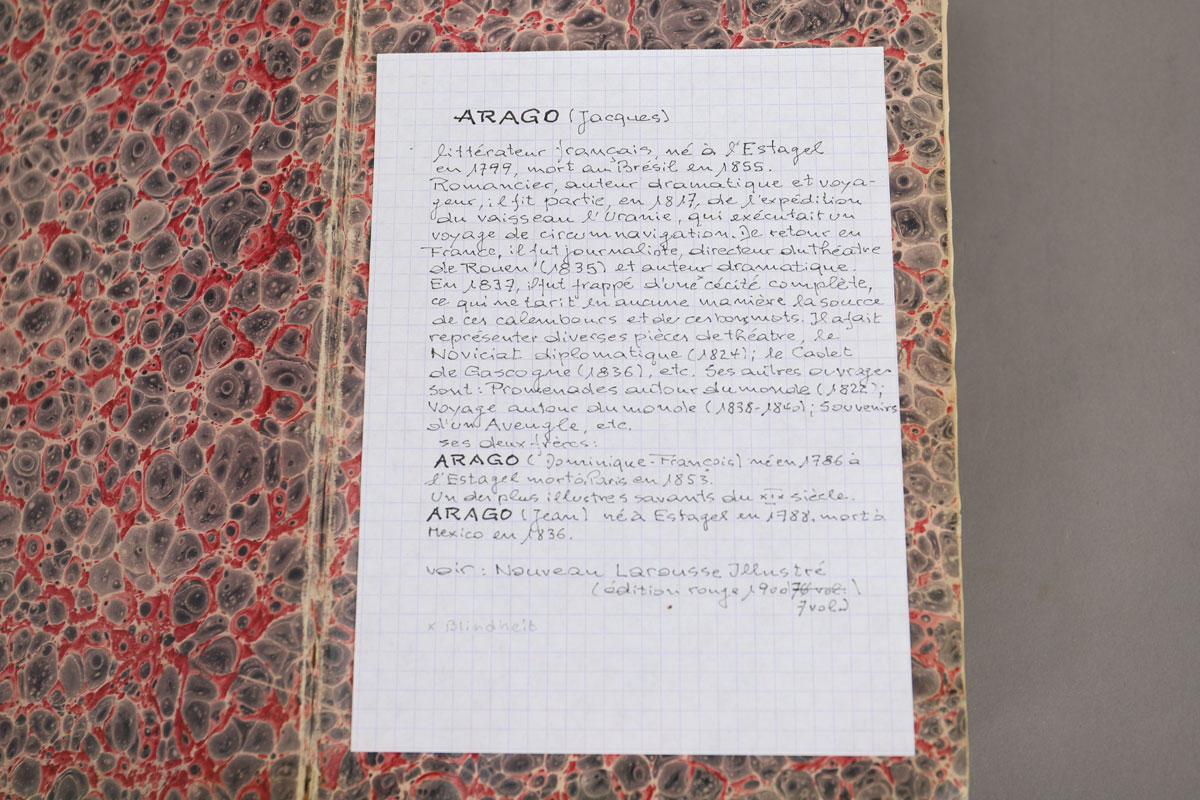 ARAGO (Jacques)
littérateur français, né à l'Estagel
en 1799, mort au Brésil en 1855.
Romancier, auteur dramatique et voya-
geur, il fit partie, en 1817, de l'expédition
du vaisseau l'Uranie, qui exécutait un
voyage de circumnavigation. De retour en
France, il fut journaliste, directeur du théatre
de Rouen (1835) et auteur dramatique.
En 1837, il fut frappé d'une x cécité complète,
ce qui ne tarit en aucune manière la source
de ces calembours et de ces bons mots. Il a fait
représenter diverses pièces de théatre, le
Noviciat diplomatique (1824); le Cadet
de Gascogne (1836), etc. Ses autres ouvrages
sont: Promenades autour du monde (1822);
Voyage autour du monde (1838-1840); Souvenirs
d'un Aveugle, etc.
ses deux frères:
ARAGO (Dominique-François) né en 1786 à
l'Estagel mort à Paris en 1853.
Un des plus illustres savants du XIX siècle.
ARAGO (Jean) né à Estagel en 1788, mort à
Mexico en 1836.
voir: Nouveau Larousse Illustré
(édition rouge 1900 vol.)
7 vol.
x Blindheit